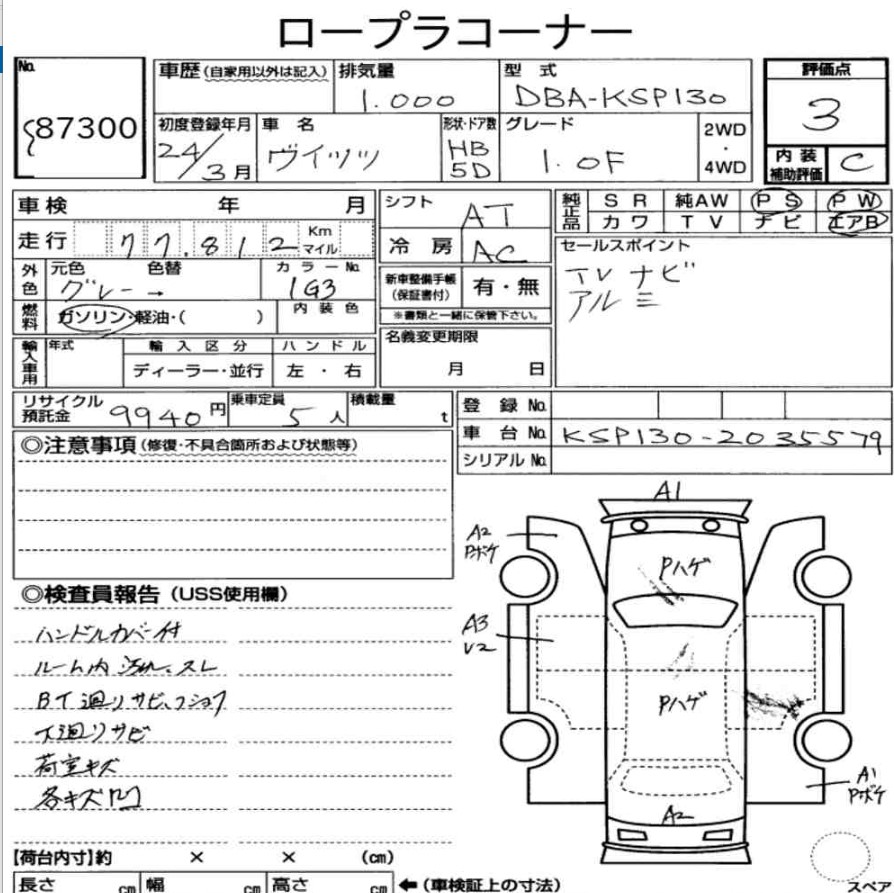 ロープラコーナー
No.
87300
車歴 (自家用以外は記入)
排気量
1.000
型式
DBA-KSP130
評価点
3
初度登録年月
24/3月
車名
ヴィッツ
形状・ドア数
HB
5D
グレード
1.0F
2WD
・
4WD
内装
補助評価
C
車検 年 月
シフト
AT
純正品
SR 純AW PS PW
カワ TV ナビ エアB
走行 77,812 Km
マイル
冷房
AC
セールスポイント
TV ナビ
アルミ
外色
元色 色替
グレー →
カラーNo.
1G3
新車整備手帳
(保証書付)
有・無
※書類と一緒に保管下さい。
燃料
ガソリン・軽油・( )
内装色
名義変更期限
月 日
輸入車用
年式
輸入区分
ハンドル
ディーラー・並行
左・右
リサイクル
預託金
9940円
乗車定員
5人
積載量
t
登録No.
車台No.
KSP130-2035579
シリアルNo.
◎注意事項 (修復・不具合箇所および状態等)
◎検査員報告 (USS使用欄)
ハンドルカバー付
ルーム内 汚れ、スレ
BT廻りサビ、フショク
下廻りサビ
荷室キズ
各キズ凹
A1
A2
Pボケ
Pハゲ
A3
U2
Pハゲ
A1
Pボケ
A2
スペア
【荷台内寸】約 × × (cm)
長さ cm 幅 cm 高さ cm
← (車検証上の寸法)